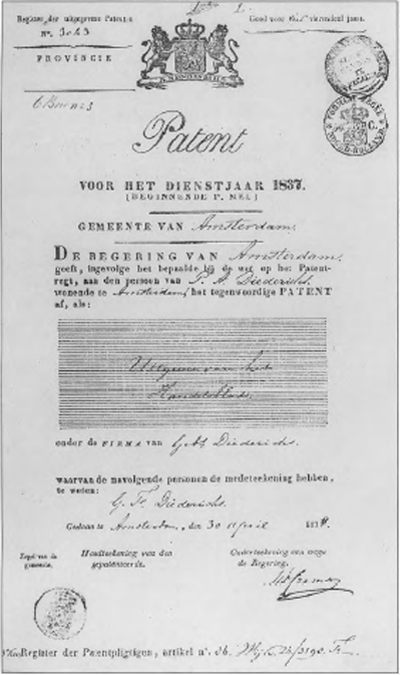 Register der uitgegeven Patenten
N°. 3043
Goed voor vier vierendeel jaars.
PROVINCIE
Patent
VOOR HET DIENSTJAAR 1837.
(BEGINNENDE 1°. MEI.)
GEMEENTE VAN Amsterdam.
DE REGERING VAN Amsterdam,
geeft, ingevolge het bepaalde bij de wet op het Patent-
regt, aan den persoon van P. A. Diederichs,
wonende te Amsterdam, het tegenwoordige PATENT
af, als:
Uitgever van het
Handelsblad.
onder de FIRMA van Gebr. Diederichs.
waarvan de navolgende personen de medeteekening hebben,
te weten:
G. F. Diederichs.
Gedaan te Amsterdam, den 30 April
Zegel van de gemeente.
Handteekening van den gepatenteerde.
Onderteekening van wege de Regering.
Register der Patentpligtigen, artikel n°.